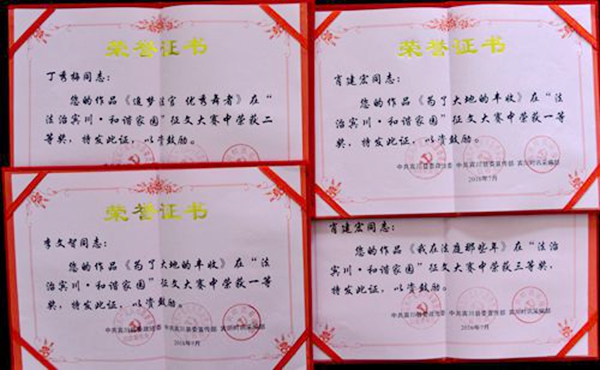 荣誉证书
丁秀梅同志：
您的作品《追梦法官 优秀舞者》在“
法治宾川·和谐家园”征文大赛中荣获二
等奖，特发此证，以资鼓励。
荣誉证书
肖建宏同志：
您的作品《为了大地的丰收》在“
法治宾川·和谐家园”征文大赛中荣获一等
奖，特发此证，以资鼓励。
中共宾川县委政法委 中共宾川县委宣传部 宾川时讯采编部
2016年7月
荣誉证书
李文智同志：
您的作品《为了大地的丰收》在“法
治宾川·和谐家园”征文大赛中荣获一等
奖，特发此证，以资鼓励。
中共宾川县委政法委 中共宾川县委宣传部 宾川时讯采编部
2016年7月
肖建宏同志：
您的作品《我在法庭那些年》在“法
治宾川·和谐家园”征文大赛中荣获三等奖，
特发此证，以资鼓励。
中共宾川县委政法委 中共宾川县委宣传部 宾川时讯采编部
2016年7月